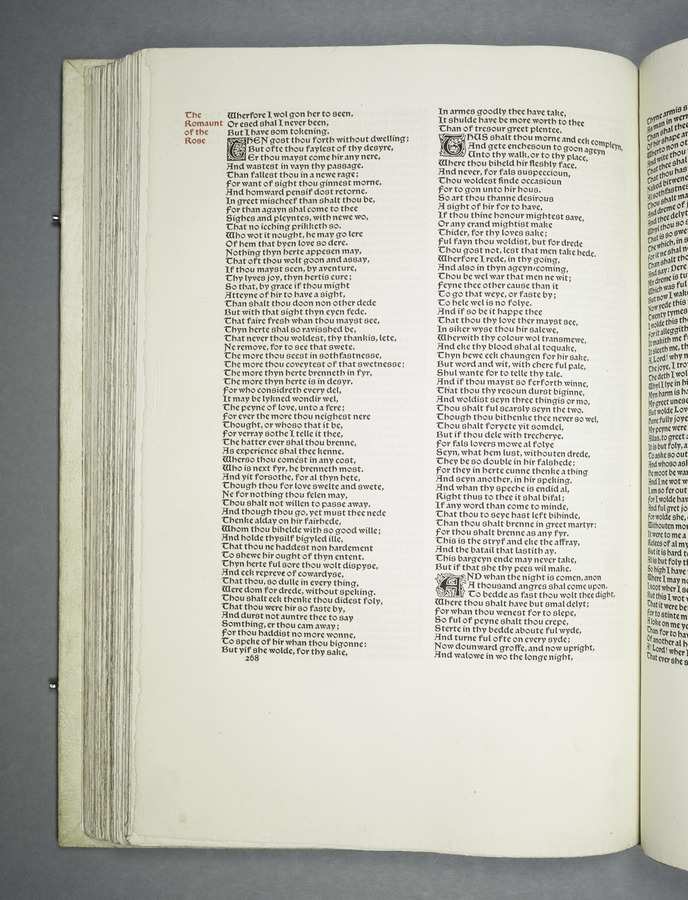 The
Romaunt
of the
Rose
Wherfore I wol gon her to seen,
Or esed shal I never been,
But I have som tokening.
THEN gost thou forth without dwelling;
But ofte thou faylest of thy desyre,
Er thou mayst come hir any nere,
And wastest in vayn thy passage.
Than fallest thou in a newe rage;
For want of sight thou ginnest morne,
And homward pensif dost retorne.
In greet mischeef than shalt thou be,
For than agayn shal come to thee
Sighes and pleyntes, with newe wo,
That no icching prikketh so.
Who wot it nought, he may go lere
Of hem that byen love so dere.
Nothing thyn herte appesen may,
That oft thou wolt goon and assay,
If thou mayst seen, by aventure,
Thy lyves joy, thyn hertis cure;
So that, by grace if thou might
Atteyne of hir to have a sight,
Than shalt thou doon non other dede
But with that sight thyn eyen fede.
That faire fresh whan thou mayst see,
Thyn herte shal so ravisshed be,
That never thou woldest, thy thankis, lete,
Ne remove, for to see that swete.
The more thou seest in sothfastnesse,
The more thou coveytest of that swetnesse;
The more thyn herte brenneth in fyr,
The more thyn herte is in desyr.
For who considreth every del,
It may be lykned wondir wel,
The peyne of love, unto a fere;
For ever the more thou neighest nere
Thought, or whoso that it be,
For verray sothe I telle it thee,
The hatter ever shal thou brenne,
As experience shal thee kenne.
Wherso thou comest in any cost,
Who is next fyr, he brenneth most.
And yit forsothe, for al thyn hete,
Though thou for love swelte and swete,
Ne for nothing thou felen may,
Thou shalt not willen to passe away.
And though thou go, yet must thee nede
Thenke alday on hir fairhede,
Whom thou bihelde with so good wille;
And holde thysilf bigyled ille,
That thou ne haddest non hardement
To shewe hir ought of thyn entent.
Thyn herte ful sore thou wolt dispyse,
And eek repreve of cowardyse,
That thou, so dulle in every thing,
Were dom for drede, without speking.
Thou shalt eek thenke thou didest foly,
That thou were hir so faste by,
And durst not auntre thee to say
Somthing, er thou cam away;
For thou haddist no more wonne,
To speke of hir whan thou bigonne:
But yif she wolde, for thy sake,
268
In armes goodly thee have take,
It shulde have be more worth to thee
Than of tresour greet plentee.
THUS shalt thou morne and eek compleyn,
And gete enchesoun to goon ageyn
Unto thy walk, or to thy place,
Where thou biheld hir fleshly face.
And never, for fals suspeccioun,
Thou woldest finde occasioun
For to gon unto hir hous.
So art thou thanne desirous
A sight of hir for to have,
If thou thine honour mightest save,
Or any erand mightist make
Thider, for thy loves sake;
Ful fayn thou woldist, but for drede
Thou gost not, lest that men take hede.
Wherfore I rede, in thy going,
And also in thyn ageyn-coming,
Thou be wel war that men ne wit;
Feyne thee other cause than it
To go that weye, or faste by;
To hele wel is no folye.
And if so be it happe thee
That thou thy love ther mayst see,
In siker wyse thou hir salewe,
Wherwith thy colour wol transmewe,
And eke thy blood shal al toquake,
Thyn hewe eek chaungen for hir sake.
But word and wit, with chere ful pale,
Shul wante for to telle thy tale.
And if thou mayst so ferforth winne,
That thou thy resoun durst biginne,
And woldist seyn three thingis or mo,
Thou shalt ful scarsly seyn the two.
Though thou bithenke thee never so wel,
Thou shalt foryete yit somdel,
But if thou dele with trecherye.
For fals lovers mowe al folye
Seyn, what hem lust, withouten drede,
They be so double in hir falshede;
For they in herte cunne thenke a thing
And seyn another, in hir speking.
And whan thy speche is endid al,
Right thus to thee it shal bifal;
If any word than come to minde,
That thou to seye hast left bihinde,
Than thou shalt brenne in greet martyr;
For thou shalt brenne as any fyr.
This is the stryf and eke the affray,
And the batail that lastith ay.
This bargeyn ende may never take,
But if that she thy pees wil make.
AND whan the night is comen, anon
A thousand angres shal come upon.
To bedde as fast thou wolt thee dight,
Where thou shalt have but smal delyt;
For whan thou wenest for to slepe,
So ful of peyne shalt thou crepe,
Sterte in thy bedde aboute ful wyde,
And turne ful ofte on every syde;
Now dounward groffe, and now upright,
And walowe in wo the longe night,